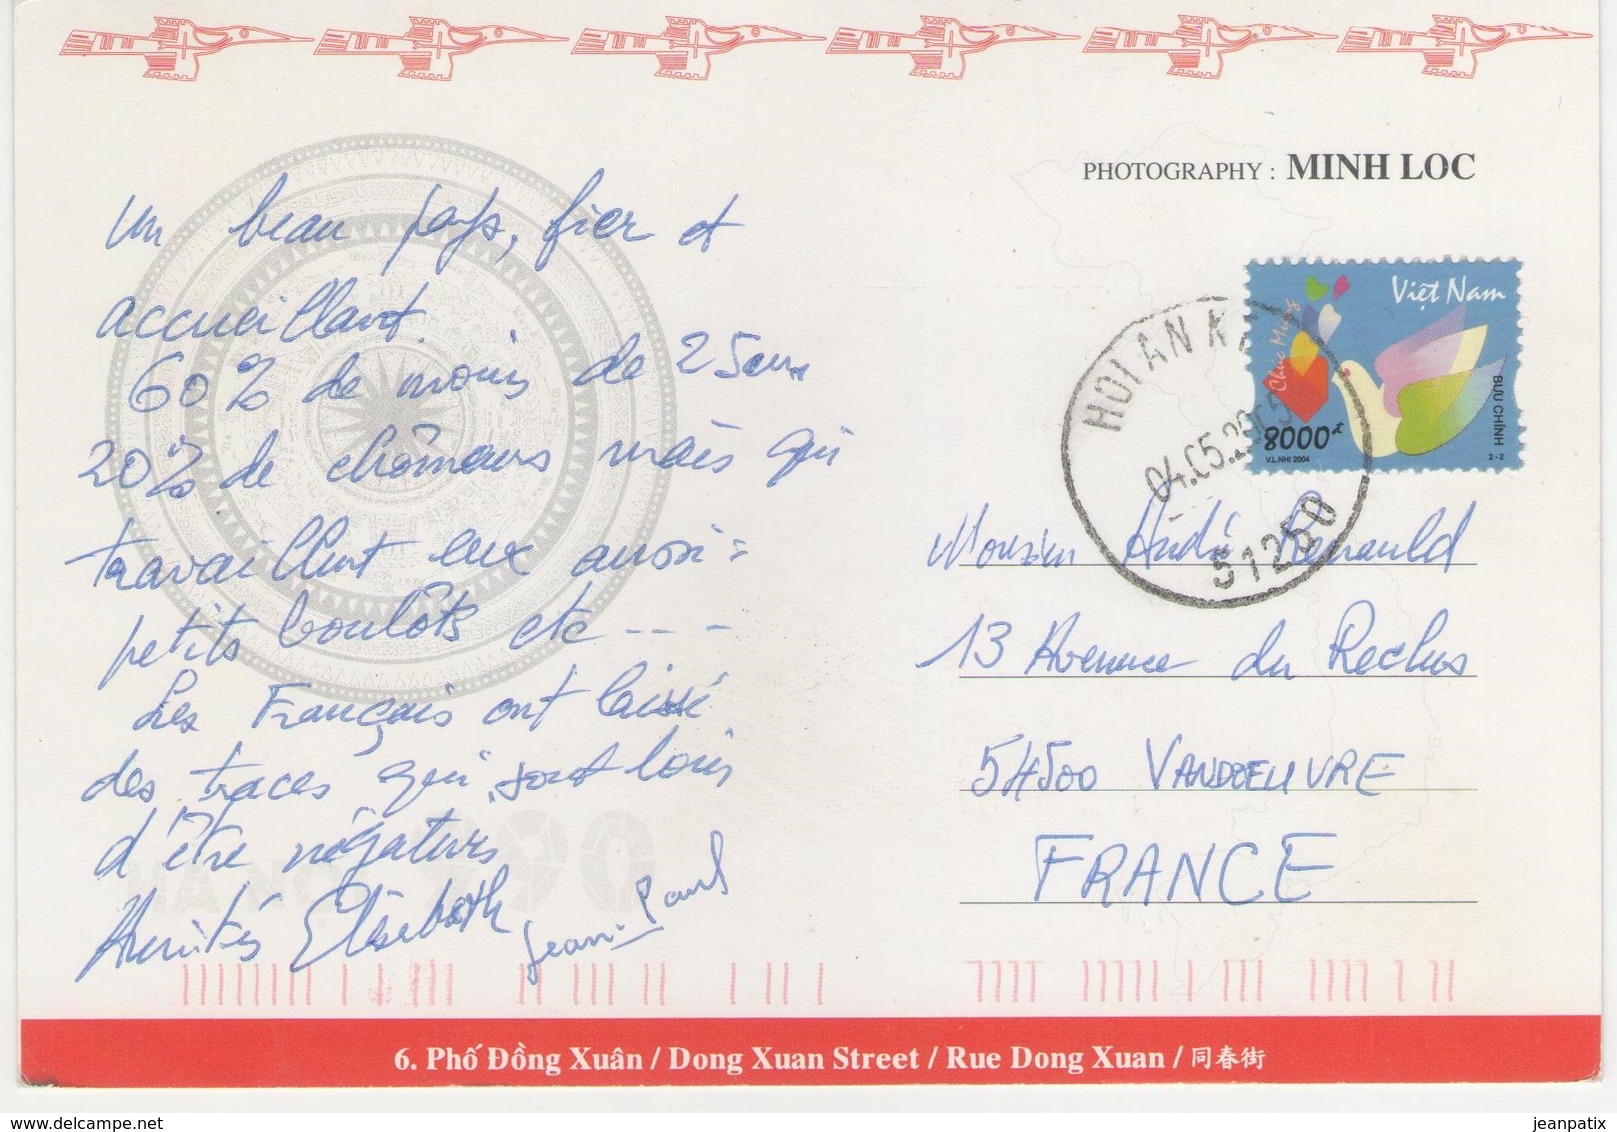 PHOTOGRAPHY : MINH LOC
Un beau pays, fier et
accueillant.
60% de moins de 25 ans
20% de chômeurs mais qui
travaillent eux aussi =
petits boulots etc ----
Les Français ont laissé
des traces qui sont loin
d'être négatives
Amitiés Elisabeth Jean-Paul
Việt Nam
Chúc Mừng
BƯU CHÍNH
8000đ
V.L.NHI 2004
2-2
HOI AN
04.05.2005
51250
Monsieur André Renauld
13 Avenue du Reclus
54500 VANDOEUVRE
FRANCE
6. Phố Đồng Xuân / Dong Xuan Street / Rue Dong Xuan / 同春街
jeanpatix